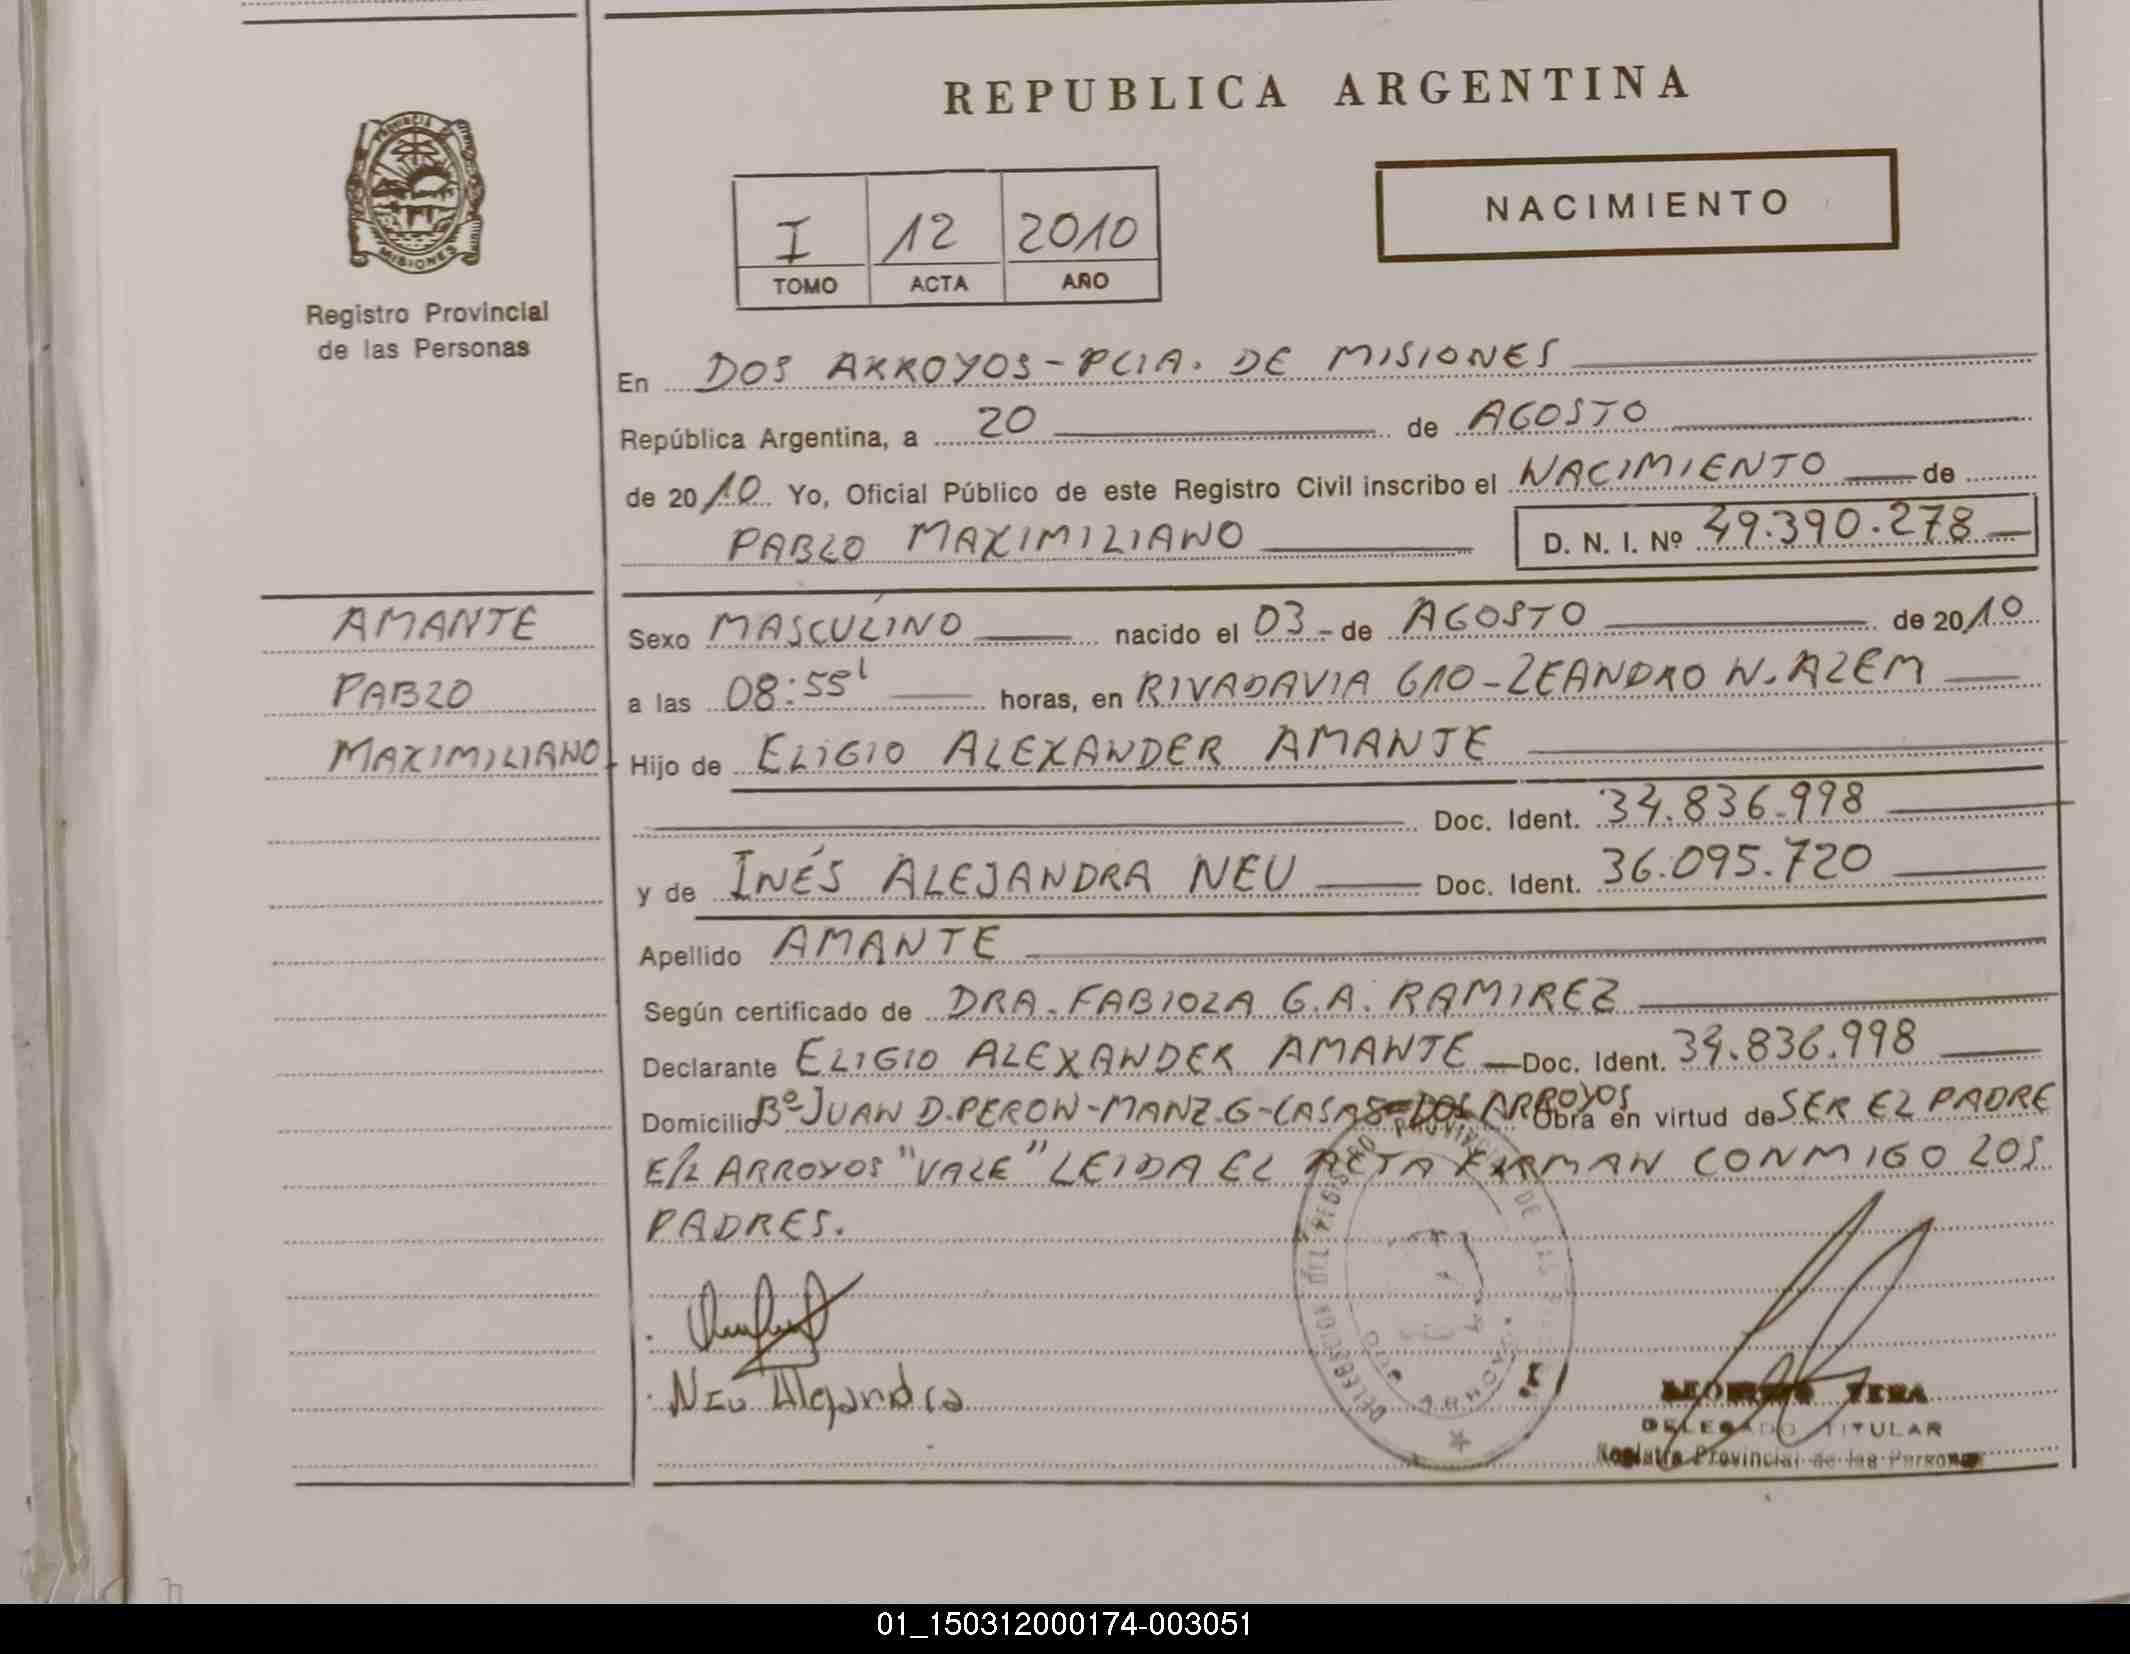 REPUBLICA ARGENTINA
PROVINCIA DE
MISIONES
Registro Provincial
de las Personas
NACIMIENTO
I 12 2010
TOMO ACTA AÑO
En DOS ARROYOS - PCIA. DE MISIONES
República Argentina, a 20 de AGOSTO
de 2010 Yo, Oficial Público de este Registro Civil inscribo el NACIMIENTO de
PABLO MAXIMILIANO D. N. I. Nº 49.390.278
AMANTE
PABLO
MAXIMILIANO
Sexo MASCULINO nacido el 03 - de AGOSTO de 2010
a las 08:55' horas, en RIVADAVIA 610 - LEANDRO N. ALEM
Hijo de ELIGIO ALEXANDER AMANTE
Doc. Ident. 34.836.998
y de INÉS ALEJANDRA NEU Doc. Ident. 36.095.720
Apellido AMANTE
Según certificado de DRA. FABIOLA G.A. RAMIREZ
Declarante ELIGIO ALEXANDER AMANTE Doc. Ident. 34.836.998
Domicilio Bº JUAN D. PERON - MANZ. G - CASA DOS ARROYOS Obra en virtud de SER EL PADRE
E/L ARROYOS "VALE" LEIDA EL ACTA FIRMAN CONMIGO LOS
PADRES.
Neu Alejandra
VERA
DELEGADO TITULAR
Registro Provincial de las Personas
01_150312000174-003051